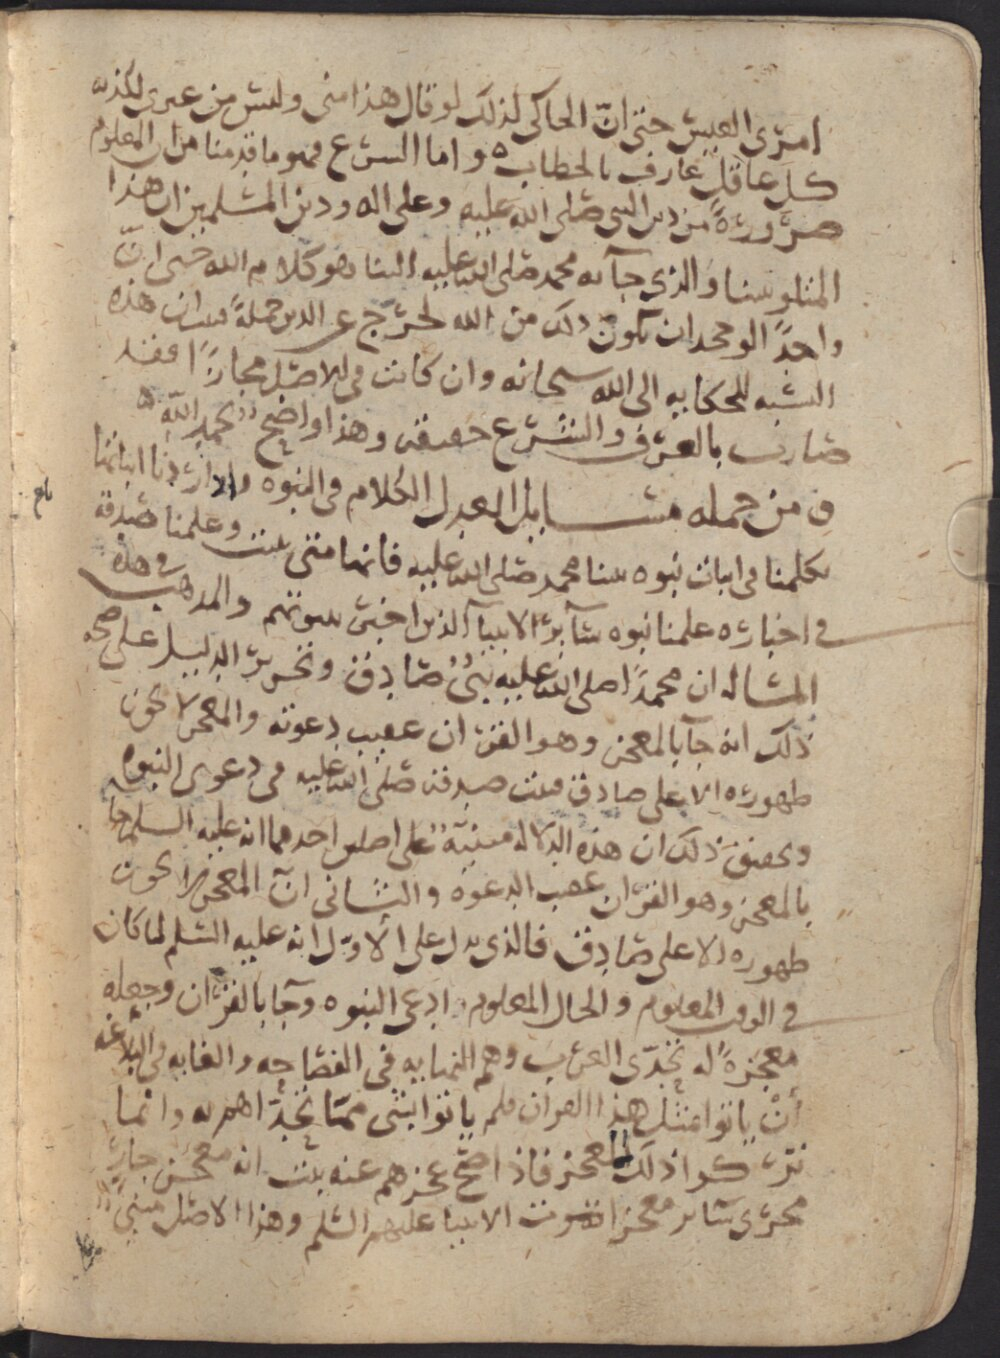 امرئ القيس حتى ان الحاكي لذلك لو قال هذا مني وليس من غيري لكذبه
كل عاقل عارف بالخطاب ٥ واما الشرع فهو ما قدمنا من ان المعلوم
ضرورة من دين النبي صلى الله عليه وعلى اله ودين المسلمين ان هذا
المتلو بيننا والذي جآ به محمد صلى الله عليه الينا هو كلام الله حتى ان
واحدًا لو جحد ان يكون ذلك من الله لخرج عن الدين جملةً فبان ان هذه
النسبه للحكايه الى الله سبحانه وان كانت في الاصل مجازًا فقد
صارت بالعرف والشرع حقيقه وهذا واضح بحمد الله ٥
ومن جمله مسايل العدل الكلام في النبوه واذا اردنا اثباتها
تكلمنا في اثبات نبوه نبينا محمد صلى الله عليه فانها متى ثبتت وعلمنا صدقه
في اخباره علمنا نبوه سآير الانبيآ الذين اخبر بنبوتهم والمذهب في هذه
المساله ان محمدًا صلى الله عليه نبيٌ صادق وتحرير الدليل على صحه
ذلك انه جآ بالمعجز وهو القران عقيب دعوته والمعجز لا يجوز
ظهوره الا على صادق فثبت صدقه صلى الله عليه في دعوى النبوه
وتحقيق ذلك ان هذه الدلاله مبنيةٌ على اصلين احدهما انه عليه السلم جا
بالمعجز وهو القران عقيب الدعوه والثاني ان المعجز لا يجوز
ظهوره الا على صادق فالذي يدل على الاول انه عليه السلم لما كان
في الوقت المعلوم والحال المعلوم ادعى النبوه وجآ بالقران وجعله
معجزةً له تحدى العرب وهم النهايه في الفصاحه والغايه في البلاغه
أن ياتوا بمثل هذا القران فلم ياتوا بشي مما تحداهم به وانما
تركوا ذلك للعجز فاذا صح عجزهم عنه ثبت انه معجز جارٍ
مجرى ساير معجزات الانبيا عليهم السلم وهذا الاصل مبني